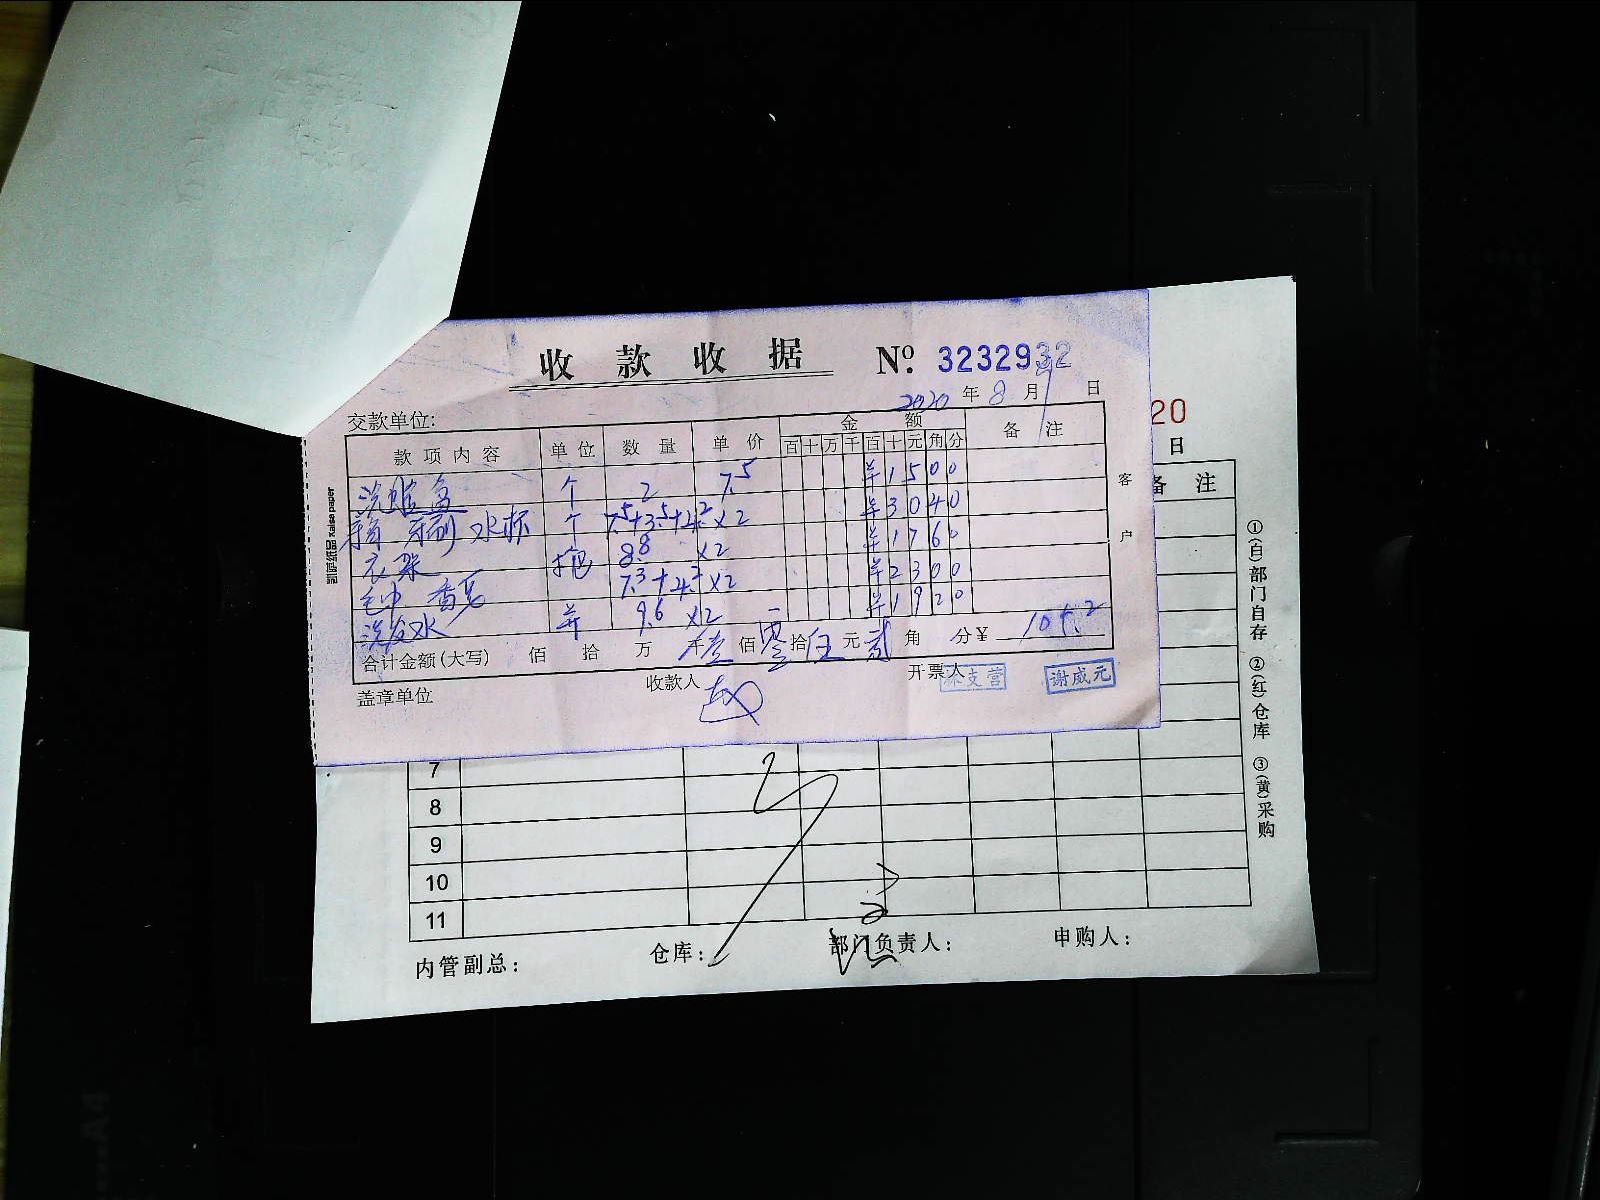 收款收据 Nº 3232932
2020 年 8 月 1 日
交款单位:
款项内容 单位 数量 单价 金额 备注
百 十 万 千 百 十 元 角 分
洗脸盆 个 2 7.5 ¥1500
牙刷 水杯 个 7.5+3.5+4.2×2 ¥3040
衣架 把 8.8 ×2 ¥1760
毛巾 香皂 7.3+4.2×2 ¥2300
洗发水 并 9.6 ×2 ¥1920
合计金额(大写) 佰 拾 万 千壹 佰零 拾伍 元贰 角 分 ¥ 105.2
盖章单位 收款人 赵 开票人 林支营 谢威元
客户
20
日
备 注
7
8
9
10
11
内管副总: 仓库: 部门负责人: 申购人:
①(白)部门自存 ②(红)仓库 ③(黄)采购